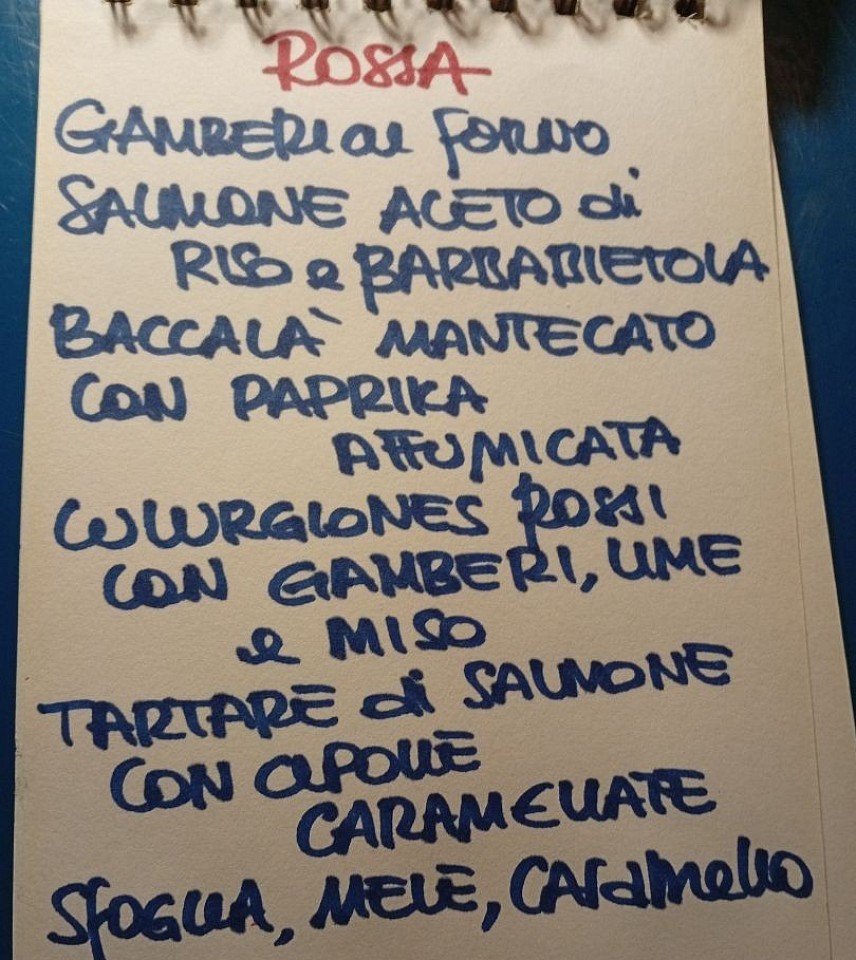 ROSSA
GAMBERI al forno
SALMONE ACETO di
RISO e BARBABIETOLA
BACCALÀ MANTECATO
CON PAPRIKA
AFFUMICATA
CULURGIONES ROSSI
CON GAMBERI, LIME
e MISO
TARTARE di SALMONE
CON CIPOLLE
CARAMELLATE
SFOGLIA, MELE, CARAMELLO